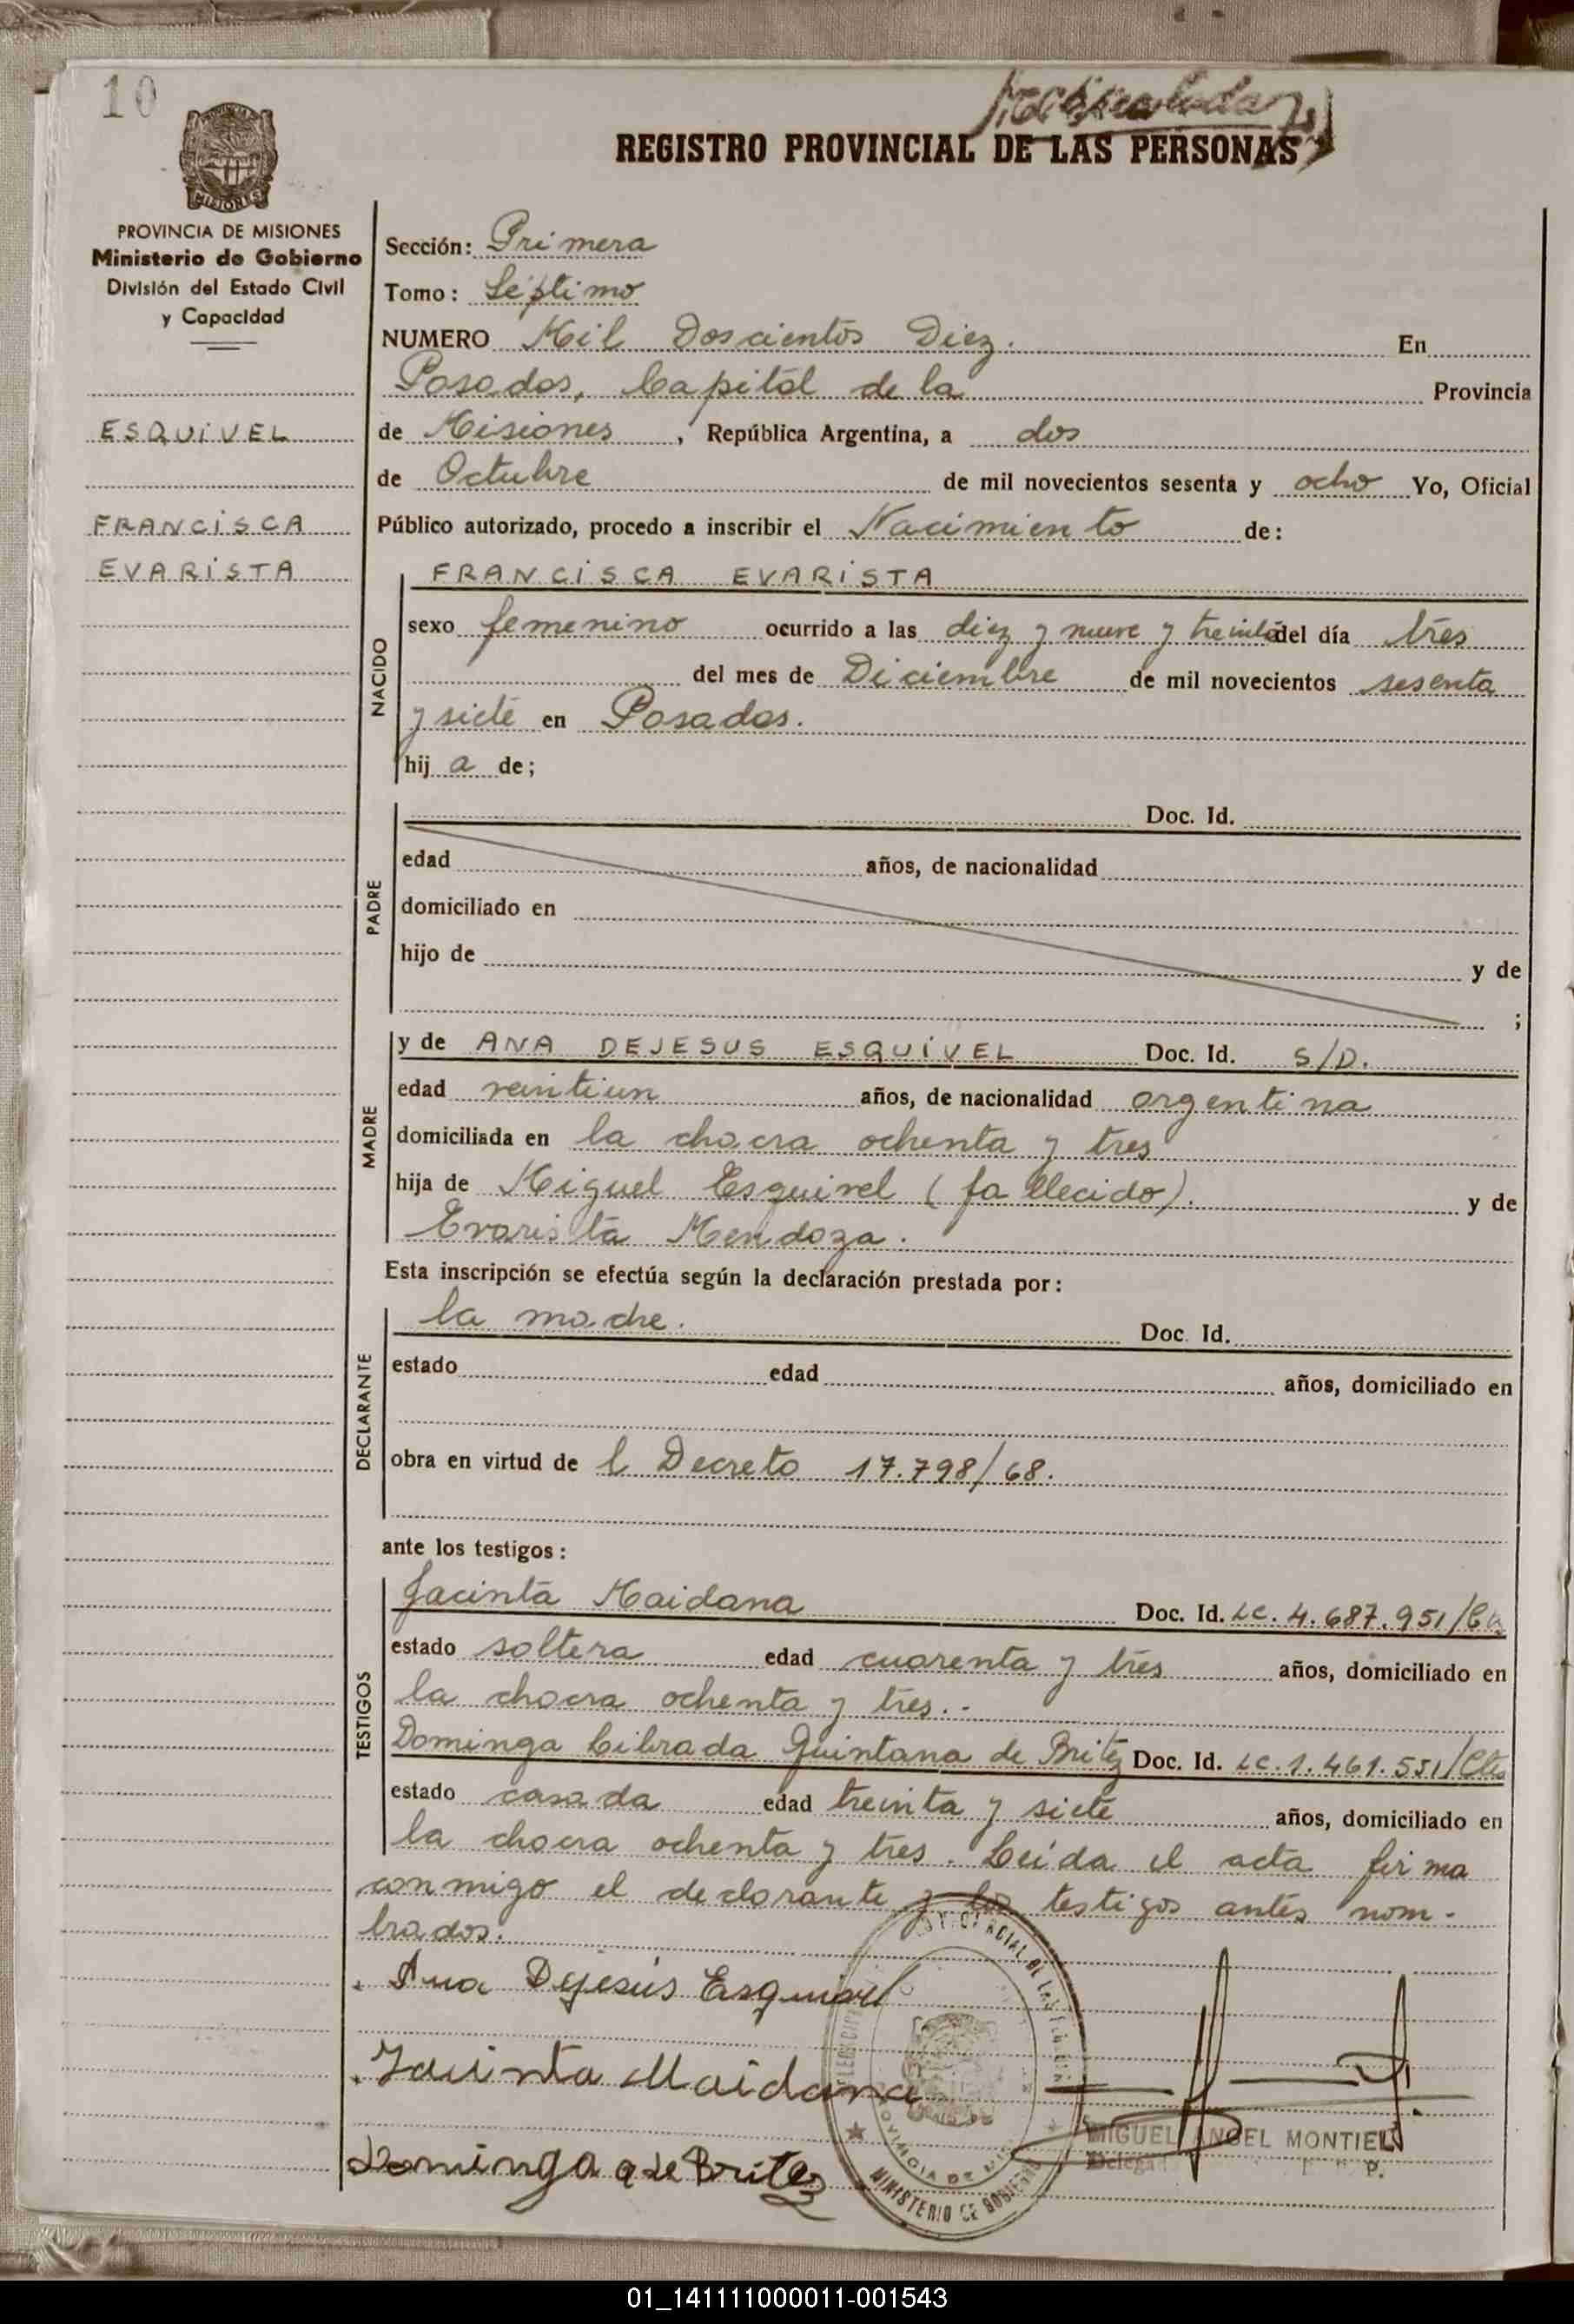 10
REGISTRO PROVINCIAL DE LAS PERSONAS
MISIONES
PROVINCIA DE MISIONES
Ministerio de Gobierno
División del Estado Civil
y Capacidad
Sección: Primera
Tomo: Séptimo
NUMERO Mil Doscientos Diez. En
Posadas, Capital de la Provincia
ESQUIVEL
de Misiones, República Argentina, a dos
de Octubre de mil novecientos sesenta y ocho Yo, Oficial
FRANCISCA
Público autorizado, procedo a inscribir el Nacimiento de:
EVARISTA
NACIDO
FRANCISCA EVARISTA
sexo femenino ocurrido a las diez y nueve y treinta del día tres
del mes de Diciembre de mil novecientos sesenta
y siete en Posadas.
hij a de;
PADRE
Doc. Id.
edad años, de nacionalidad
domiciliado en
hijo de y de
;
MADRE
y de ANA DEJESUS ESQUIVEL Doc. Id. S/D.
edad veintiun años, de nacionalidad argentina
domiciliada en la chacra ochenta y tres
hija de Miguel Esquivel (fallecido). y de
Evarista Mendoza.
Esta inscripción se efectúa según la declaración prestada por:
DECLARANTE
la madre. Doc. Id.
estado edad años, domiciliado en
obra en virtud de l Decreto 17.798/68.
ante los testigos:
TESTIGOS
Jacinta Maidana Doc. Id. LC. 4.687.951/
estado soltera edad cuarenta y tres años, domiciliado en
la chacra ochenta y tres..-
Dominga Librada Quintana de Britez Doc. Id. LC. 1.461.551/Ctes
estado casada edad treinta y siete años, domiciliado en
la chacra ochenta y tres. Leída el acta firma
conmigo el declarante y los testigos antes nom-
brados.
Ana Dejesús Esquivel
Jacinta Maidana
Dominga Q de Britez
MINISTERIO DE GOBIERNO
MIGUEL ANGEL MONTIEL
01_141111000011-001543